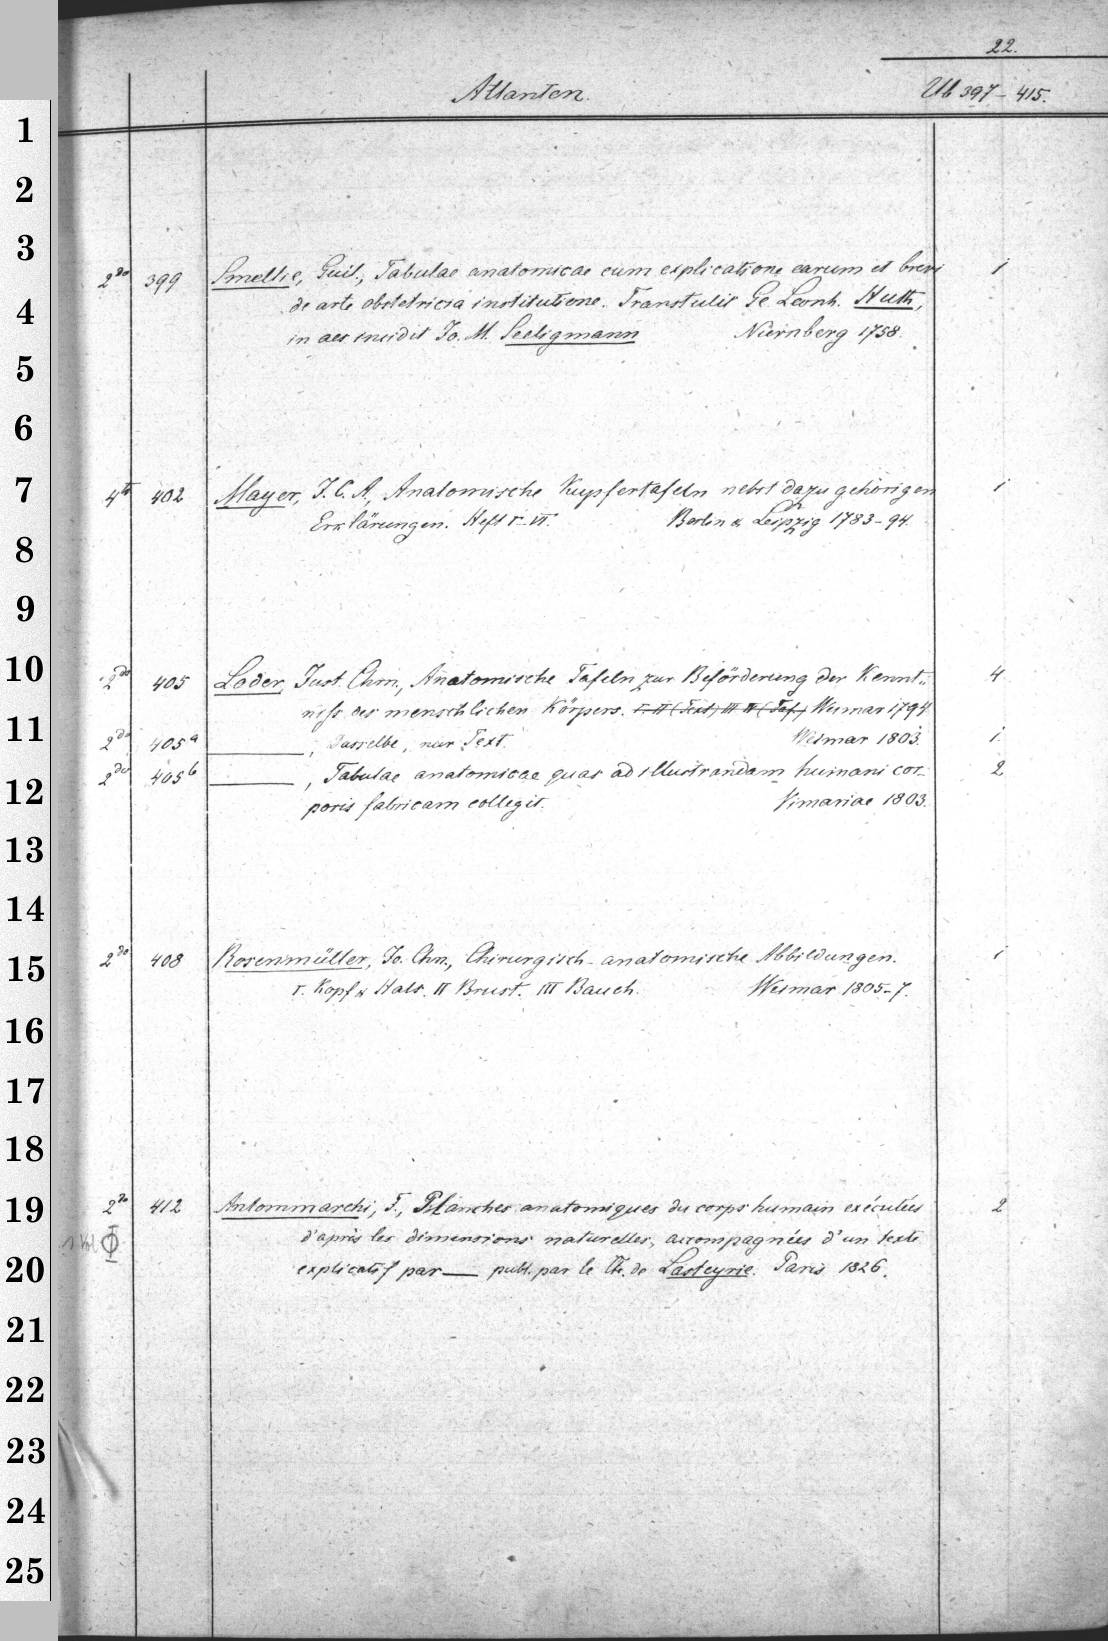 22.
Atlanten. Ub 397 - 415.
1
2
3
4
5
6
7
8
9
10
11
12
13
14
15
16
17
18
19
20
21
22
23
24
25
2do 399 Smellie, Guil., Tabulae anatomicae cum explicatione earum et brevi 1
de arte obstetricia institutione. Transtulit Ge Leonh. Huth,
in aes incidit Jo. M. Seeligmann Nürnberg 1758.
4to 402 Mayer, J. C. A., Anatomische Kupfertafeln nebst dazu gehörigen 1
Erklärungen. Heft I-VI. Berlin & Leipzig 1783-94.
2do 405 Loder, Just. Chrn., Anatomische Tafeln zur Beförderung der Kennt- 4
niss des menschlichen Körpers. I. II (Text) III IV (Taf.) Weimar 1794
2do 405a ———, Dasselbe, nur Text. Weimar 1803. 1.
2do 405b ———, Tabulae anatomicae quas ad illustrandam humani cor- 2
poris fabricam collegit. Vimariae 1803.
2do 408 Rosenmüller, Jo. Chn., Chirurgisch-anatomische Abbildungen. 1
I. Kopf & Hals. II Brust. III Bauch. Weimar 1805-7.
2do 412 Antommarchi, F., Planches anatomiques du corps humain exécutées 2
d'après les dimensions naturelles, accompagnées d'un texte
explicatif par — publ. par le Cte. de Lasteyrie. Paris 1826.